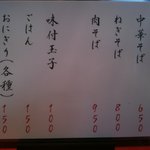 中華そば 650
ねぎそば 800
肉そば 950
味付玉子 100
ごはん 150
おにぎり(各種) 150